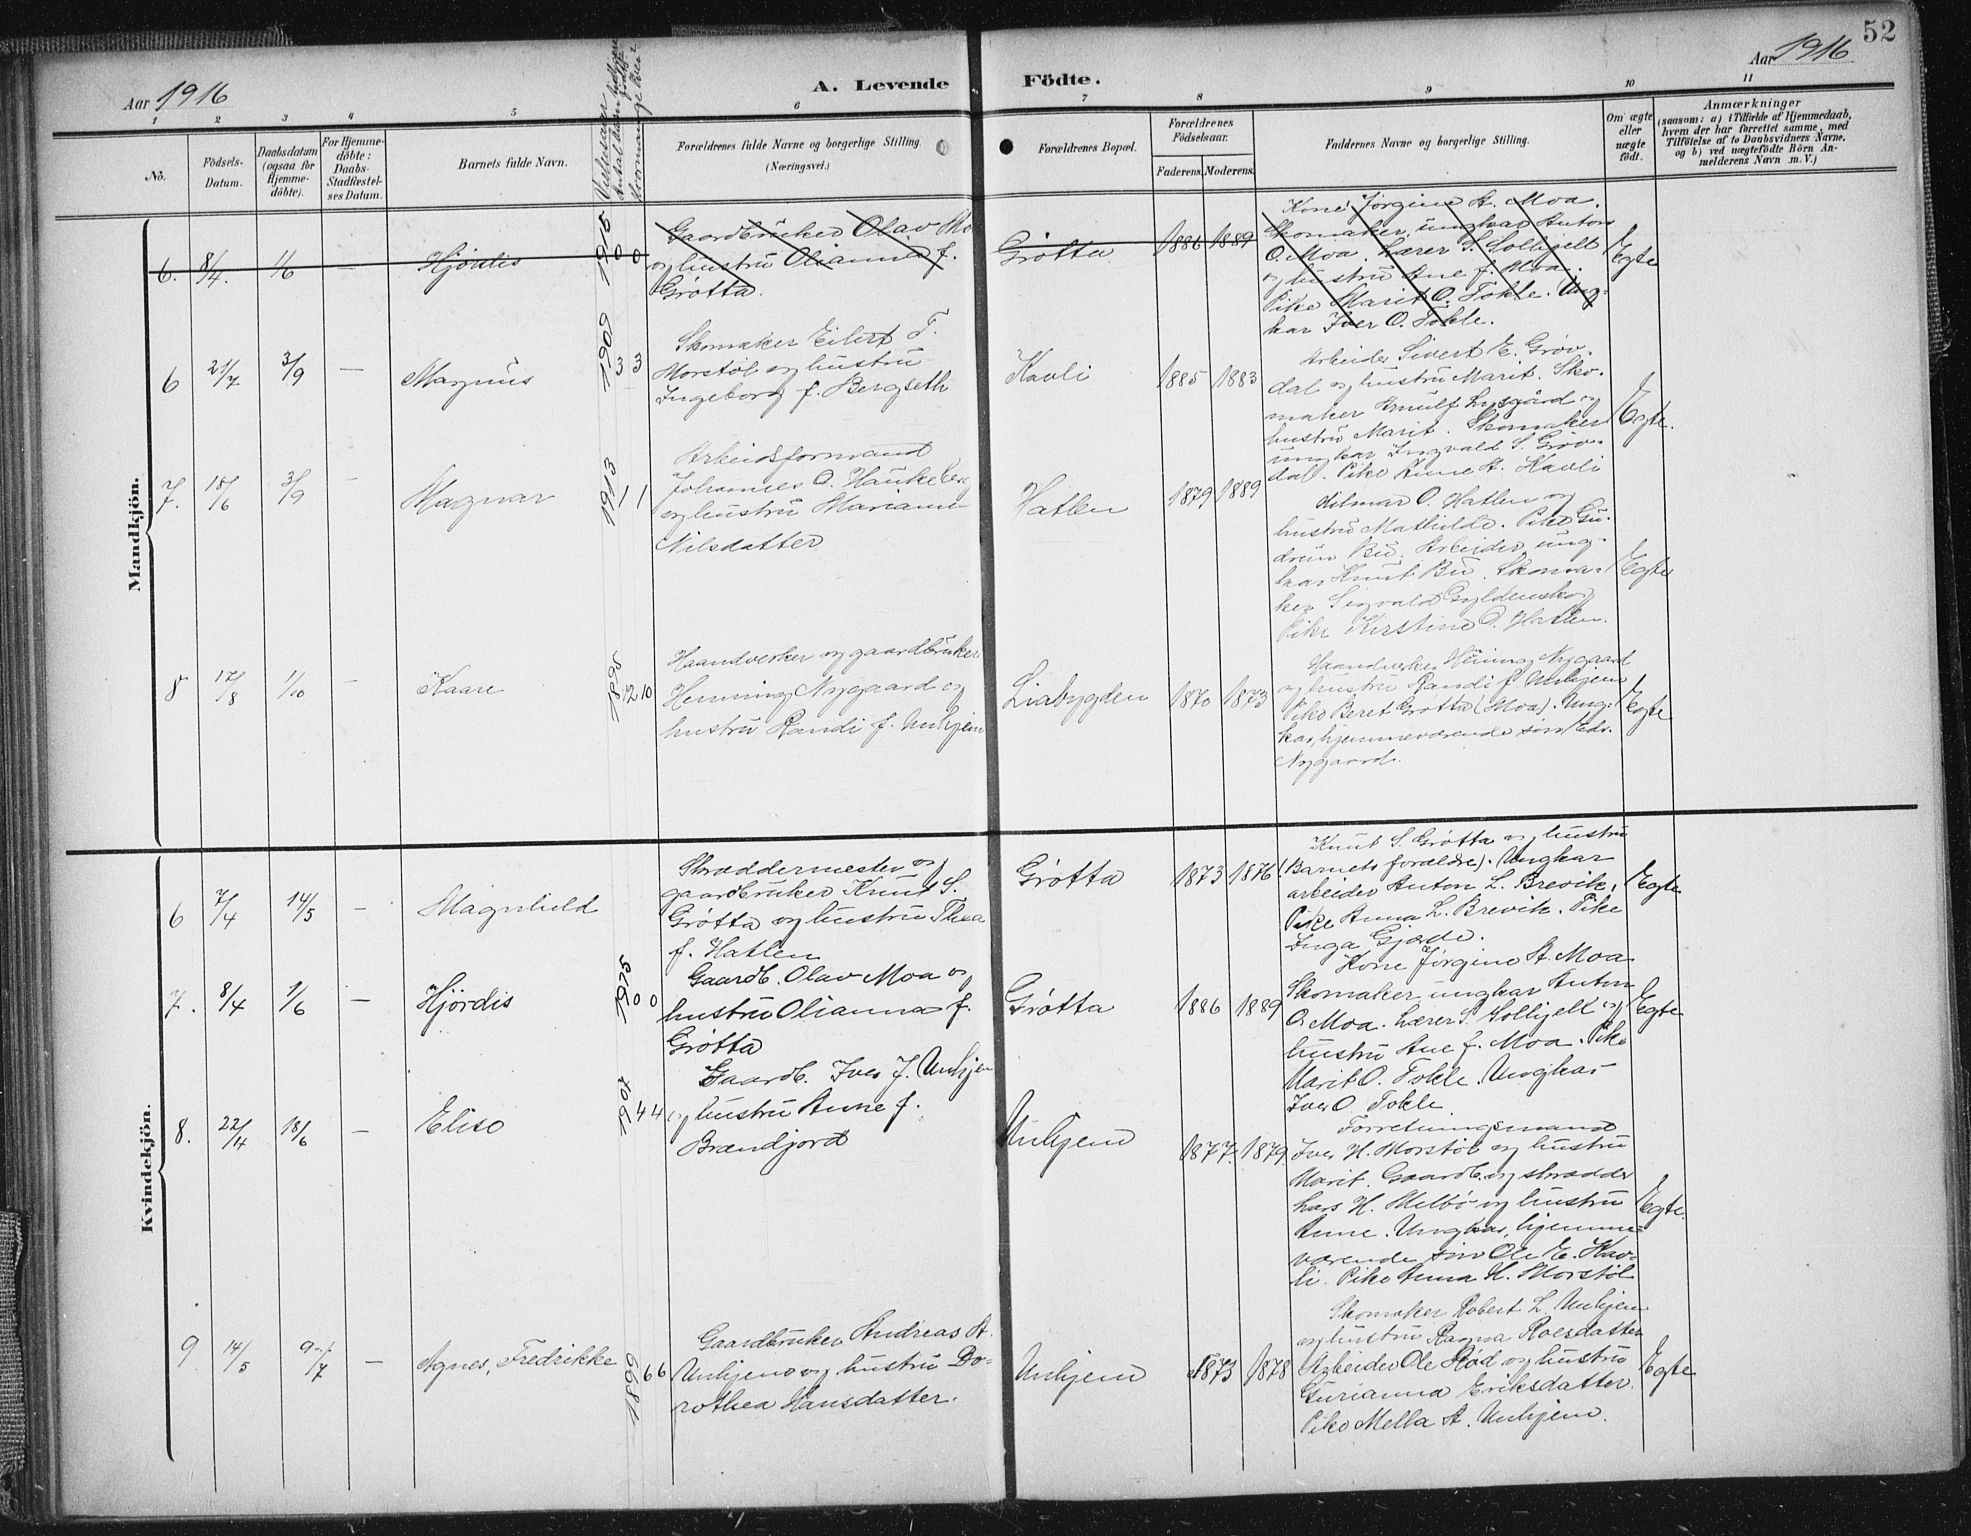 52
Aar 1916
A. Levende Födte.
Aar 1916
1 2 3 4 5 6 7 8 9 10 11
No.
Födsels-Datum.
Daabsdatum (ogsaa for Hjemme-döbte).
For Hjemme-döbte: Daabs-Stadfæstel-ses Datum.
Barnets fulde Navn.
Forældrenes fulde Navne og borgerlige Stilling. (Næringsvei.)
Forældrenes Bopæl.
Forældrenes Födselsaar.
Faderens. Moderens.
Faddernes Navne og borgerlige Stilling.
Om ægte eller uægte födt.
Anmærkninger
(saasom: a) i Tilfælde af Hjemmedaab,
hvem der har forrettet samme, med
Tilföielse af to Daabsvidners Navne,
og b) ved uægtefödte Börn An-
melderens Navn m. V.)
Mandkjön.
6. 8/4. 1/6 — Hjördis 1915 0 0
Gaardbruker Olav Mo
og hustru Olianna f.
Grøtta.
Grøtta 1886 1889
Kone Jørgine A. Moa.
Skomaker, ungkar Anton
O. Moa. Lærer S. Solligelt
og hustru Ane f. Moa.
Pike Marit O. Tokle. Ung-
kar Iver O. Tokle.
Egte
6 21/7 3/9 — Magnus 1909 3 3
Skomaker Eilert T.
Morstøl og hustru
Ingeborg f. Bergseth
Kavli 1885 1883
Arbeider Sivert E. Grøv-
dal og hustru Marit. Sko-
maker Arnulf Lysgård og
hustru Marit. Skomaker
ungkar Ingvald S. Grøv-
dal. Pike Anne A. Kavli
Egte.
7. 18/6 3/9 — Magnar 1913 1 1
Arbeidsformand
Johannes O. Haukeberg
og hustru Marianne
Nilsdatter
Hatlen 1879 1889
Hilmar O. Hatlen og
hustru Mathilde. Pike Gu-
drun Bu. Arbeider, ung-
kar Knut Bu. Skoma-
ker Sigvald Gyldenskog
Pike Kirstine O. Hatlen.
Egte
8 17/8 1/10 — Kaare 1895 12 10
Haandverker og gaardbruker
Henning Nygaard og
hustru Randi f. Unhjem
Liabygden 1870 1873
Haandverker Hening Nygaard
og hustru Randi f. Unhjem
Pike Beret Grøtta (Moa). Ung-
kar, hjemmeværende søn Edv.
Nygaard.
Egte
Kvindekjön.
6 7/4 14/5 — Magnhild
Skræddermester og
gaardbruker Knut S.
Grøtta og hustru Thea
f. Hatlen
Grøtta 1873 1876
Knut S. Grøtta og hustru
(Barnets forældre). Ungkar
arbeider Anton L. Brevik,
Pike Anna L. Brevik. Pike
Inga Gjærde.
Egte
7. 8/4 1/6 — Hjördis 1915 0 0
Gaardb. Olav Moa og
hustru Olianna f.
Grøtta
Grøtta 1886 1889
Kone Jørgine A. Moa
Skomaker, ungkar Anton
O. Moa. Lærer S. Solligelt og
hustru Ane f. Moa. Pike
Marit O. Tokle. Ungkar
Iver O. Tokle.
Egte
8. 22/4 18/6 — Elise 1907 4 4
Gaardb. Iver J. Unhjem
og hustru Anne f.
Brandjord
Unhjem 1877. 1879
Forretningsmand
Iver H. Morstøl og hustru
Marit. Gaardb. og skrædder
Lars H. Melbø og hustru
Anne. Ungkar, hjemme-
værende søn Ole E. Kav-
li. Pike Anna H. Morstøl
Egte.
9 14/5 9/7 — Agnes, Fredrikke 1899 6 6
Gaardbruker Andreas A.
Unhjem og hustru Do-
rothea Hansdatter.
Unhjem 1873 1878
Skomaker Robert L. Unhjem
og hustru Ragna Roesdatter
Arbeider Ole Rød og hustru
Gurianna Eriksdatter.
Pike Mella A. Unhjem.
Egte